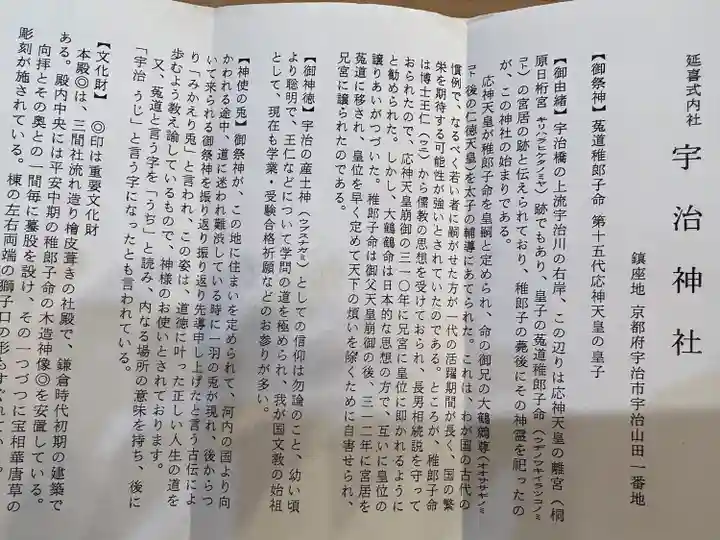 延喜式内社
宇治神社
鎮座地 京都府宇治市宇治山田一番地
【御祭神】菟道稚郎子命 第十五代応神天皇の皇子
【御由緒】宇治橋の上流宇治川の右岸、この辺りは応神天皇の離宮(桐
原日桁宮 キリハラヒケタノミヤ)跡でもあり、皇子の菟道稚郎子命(ウヂノワキイラツコノミ
コト)の宮居の跡と伝えられており、稚郎子の薨後にその神霊を祀ったの
が、この神社の始まりである。
応神天皇が稚郎子命を皇嗣と定められ、命の御兄の大鷦鷯尊(オオササギノミ
コト 後の仁徳天皇)を太子の輔導にあてられた。これは、わが国の古代の
慣例で、なるべく若い者に嗣がせた方が一代の活躍期間が長く、国の繁
栄を期待する可能性が強いとされていたのである。ところが、稚郎子命
は博士王仁(ワニ)から儒教の思想を受けておられ、長男相続説を守って
おられたので、応神天皇崩御の三一〇年に兄宮に皇位に即かれるように
と勧められた。しかし、大鷦鷯命は日本的な思想の方で、互いに皇位の
譲りあいがつづいた。稚郎子命は御父天皇崩御の後、三一二年に宮居を
菟道に移され、皇位を早く定めて天下の煩いを除くために自害せられ、
兄宮に譲られたのである。
【御神徳】宇治の産土神(ウブスナガミ)としての信仰は勿論のこと、幼い頃
より聡明で、王仁などについて学問の道を極められ、我が国文教の始祖
として、現在も学業・受験合格祈願などのお参りが多い。
【神使の兎】御祭神が、この地に住まいを定められて、河内の国より向
かわれる途中、道に迷われ難渋している時に一羽の兎が現れ、後からつ
いて来られる御祭神を振り返り振り返り先導申し上げたと言う古伝によ
り「みかえり兎」と言われ、この姿は、道徳に叶った正しい人生の道を
歩むよう教え諭しているもので、神様のお使いとされております。
又、菟道と言う字を「うぢ」と読み、内なる場所の意味を持ち、後に
「宇治 うじ」と言う字になったとも言われている。
【文化財】 ◎印は重要文化財
本殿◎は、三間社流れ造り檜皮葺きの社殿で、鎌倉時代初期の建築で
ある。殿内中央には平安中期の稚郎子命の木造神像◎を安置している。
向拝とその奥との一間毎に蟇股を設け、その一つづつに宝相華唐草の
彫刻が施されている。棟の左右両端の獅子口の形もすぐれてい